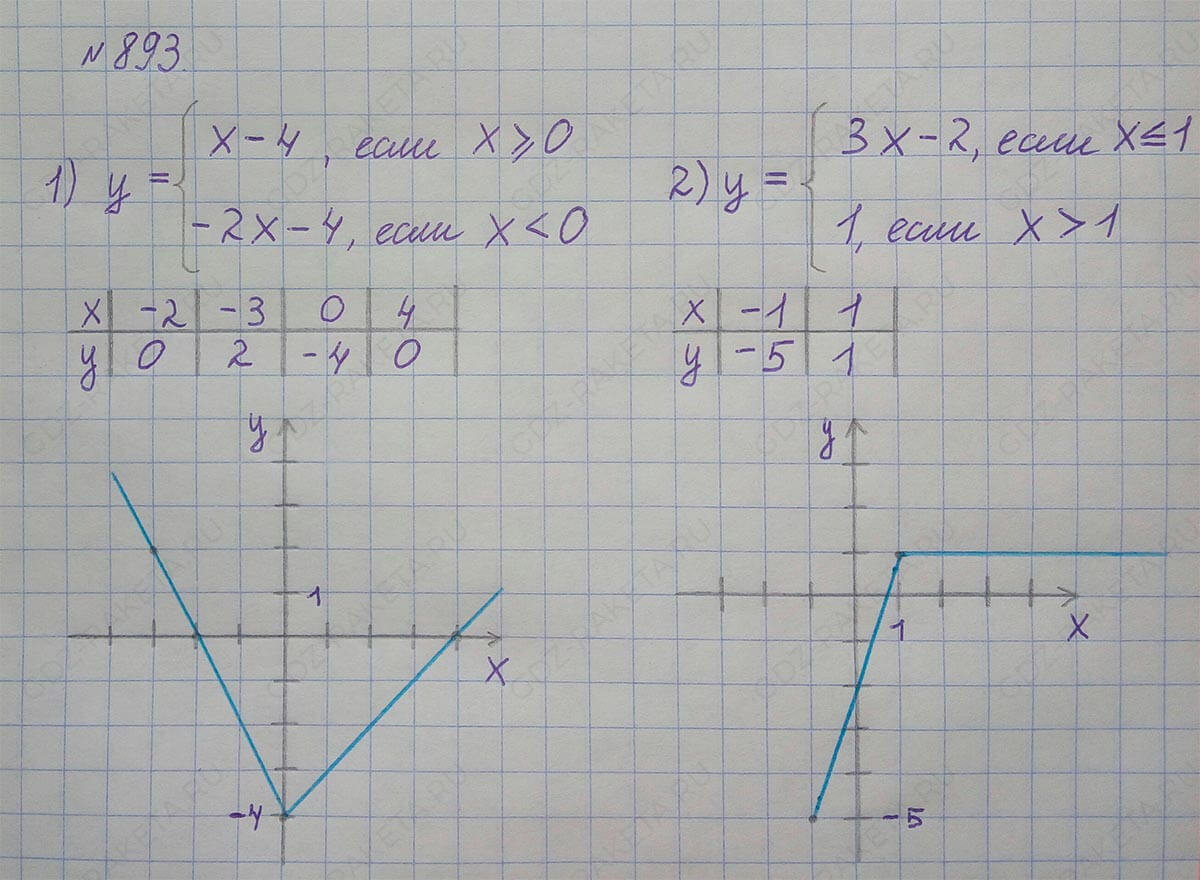 №893.
1) y = { x - 4, если x ⩾ 0
-2x - 4, если x < 0
x | -2 | -3 | 0 | 4
y | 0 | 2 | -4 | 0
y
1
x
-4
2) y = { 3x - 2, если x ≤ 1
1, если x > 1
x | -1 | 1
y | -5 | 1
y
1
x
-5
GDZ-RAKETA.RU